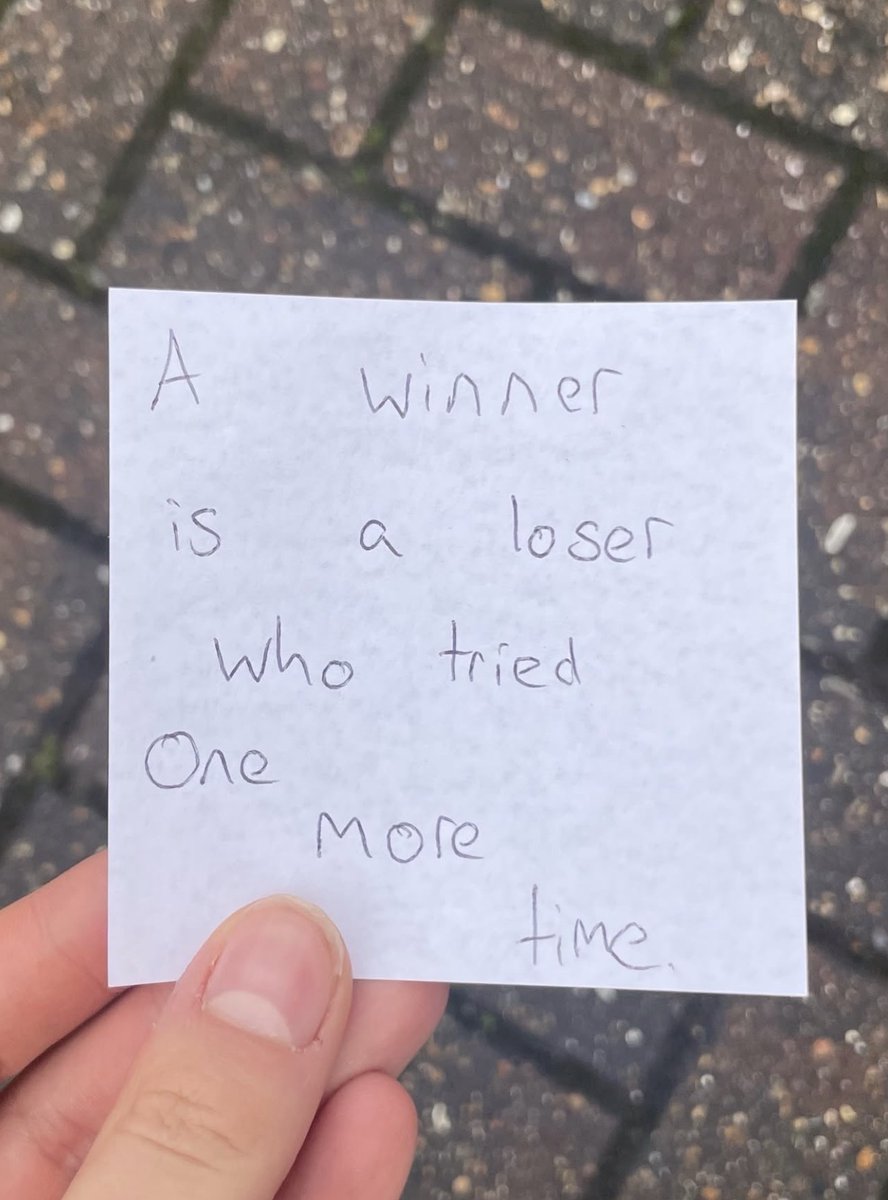 A winner
is a loser
who tried
One
more
time.